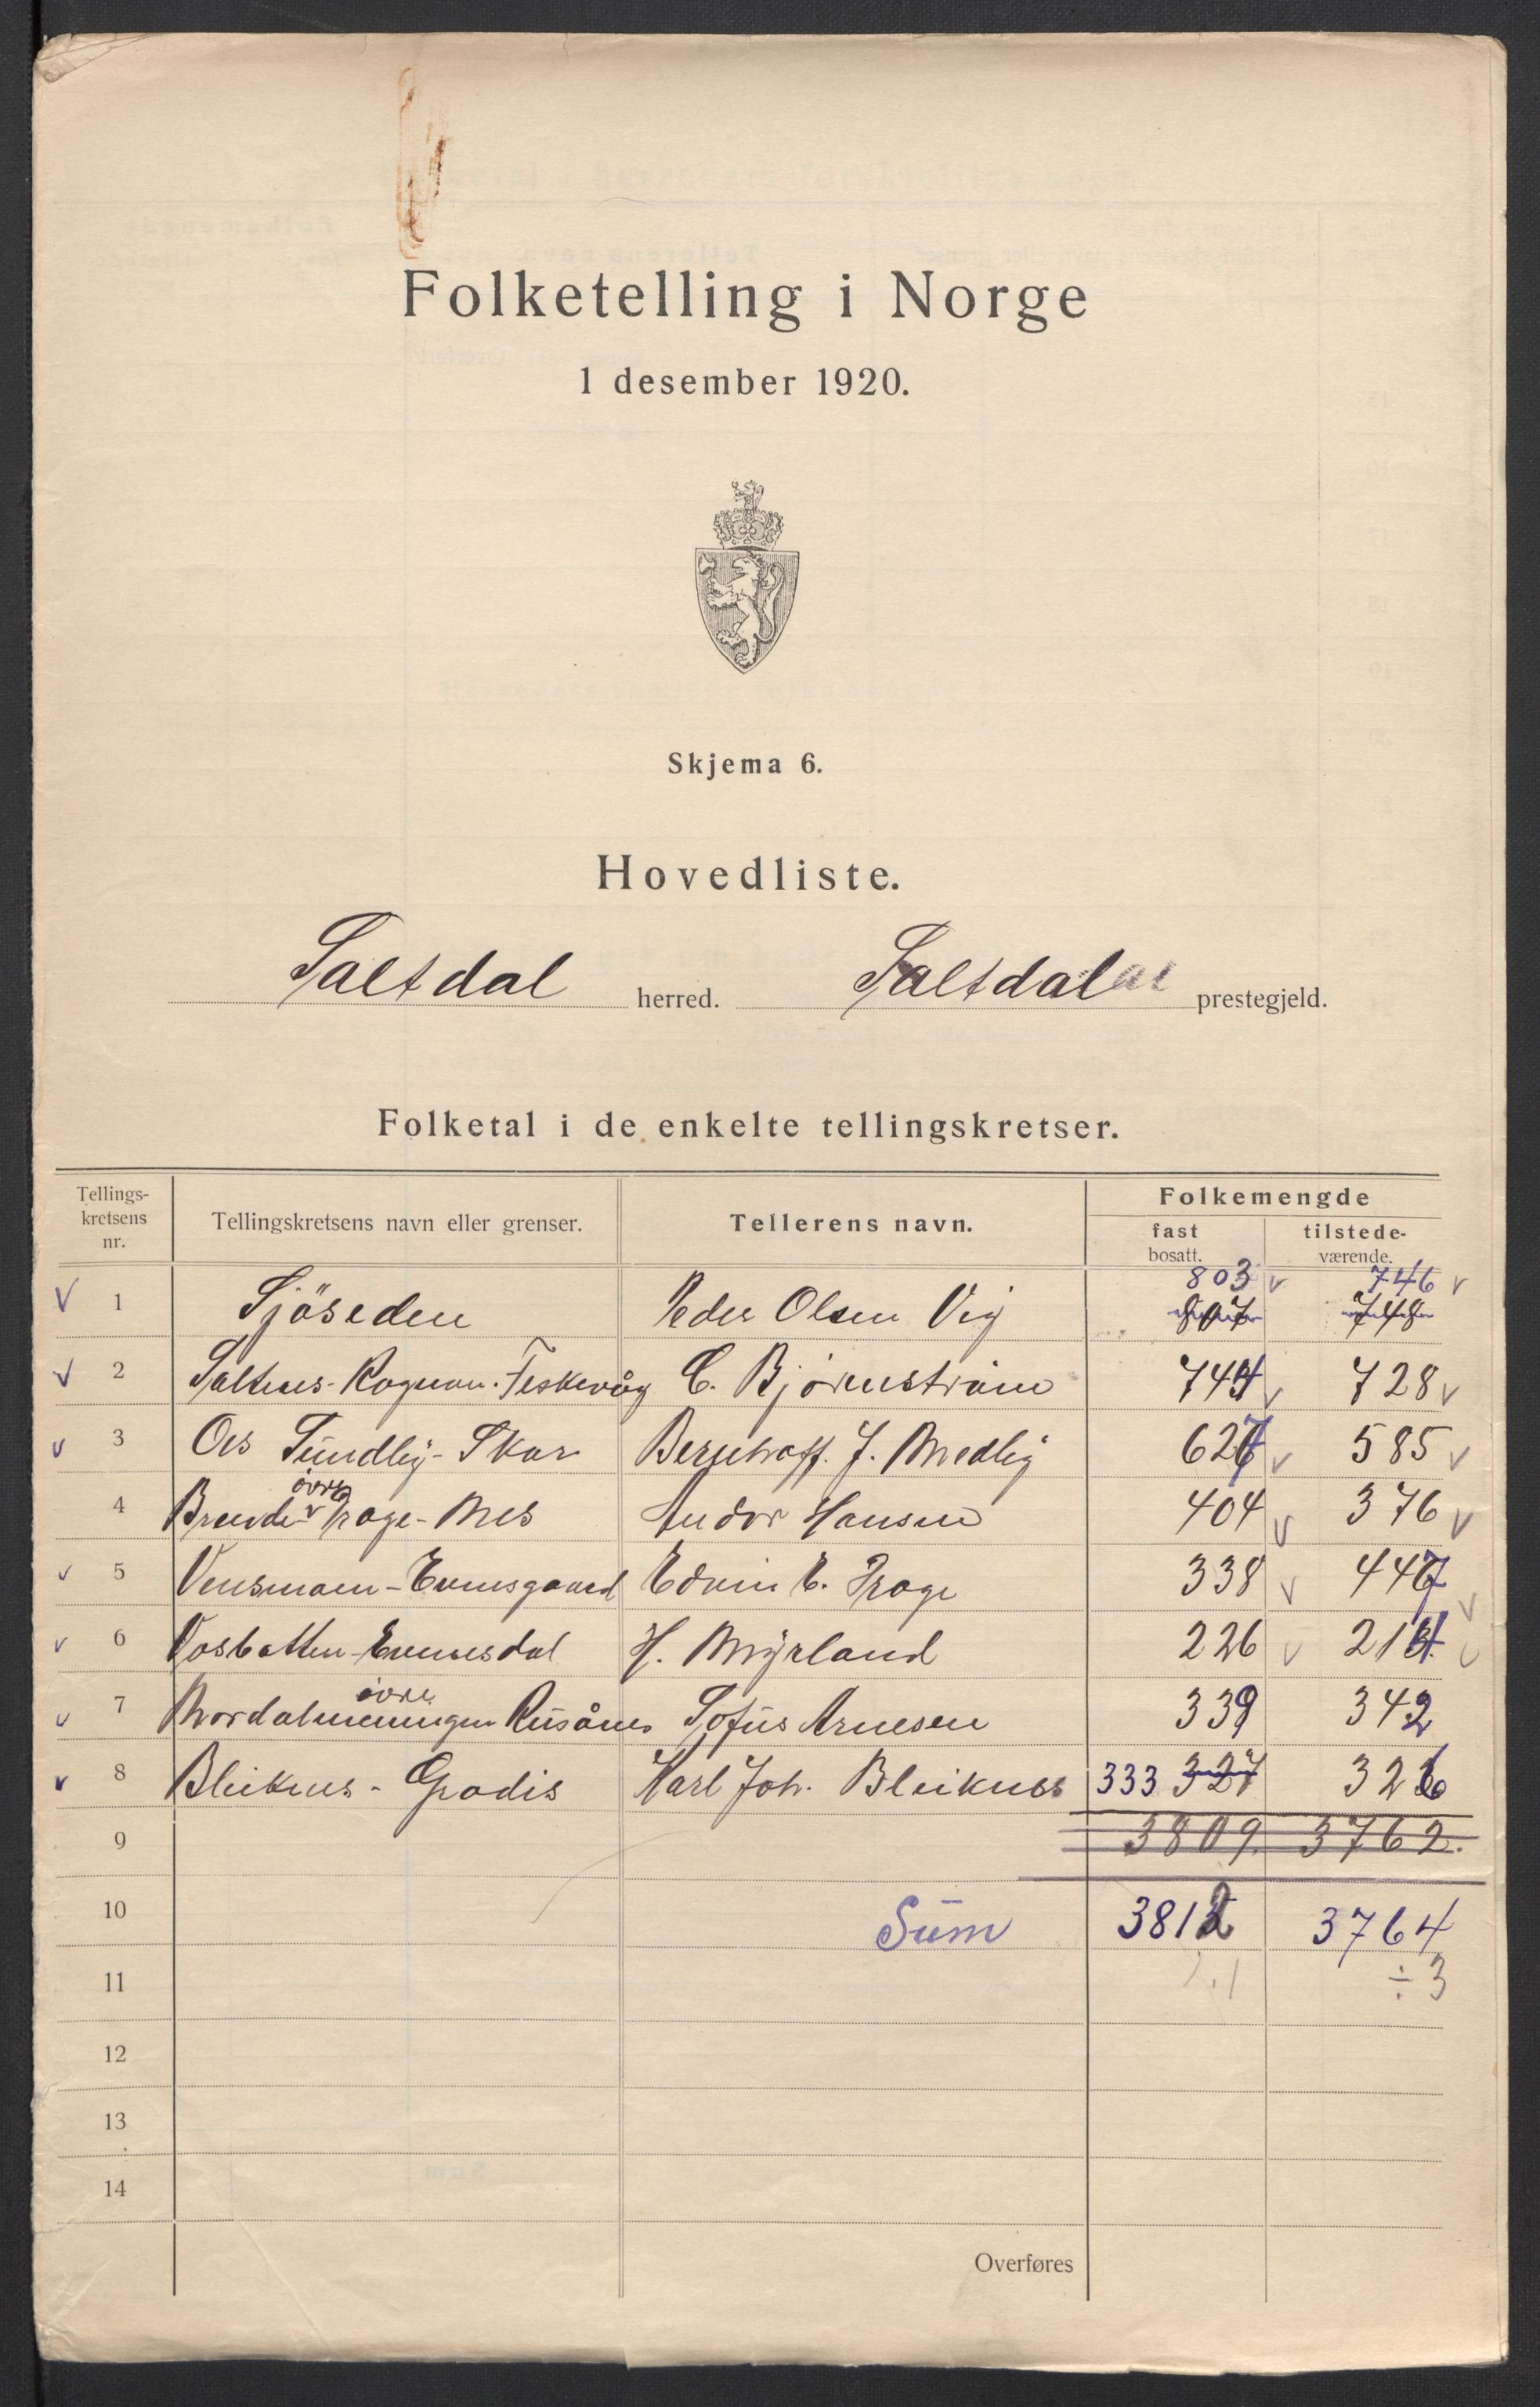 Folketelling i Norge
1 desember 1920.
Skjema 6.
Hovedliste.
Saltdal herred. Saltdal prestegjeld.
Folketal i de enkelte tellingskretser.
Tellings-
kretsens
nr.
Tellingskretsens navn eller grenser.
Tellerens navn.
Folkemengde
fast
bosatt.
tilstede-
værende.
803 v 746 v
V 1 Sjöseden Peder Olsen Vig 807 748
v 2 Saltnes-Rognan-Fiskevåg C. Bjørnstrøm 744 v 728 v
v 3 Os Sundby-Skar Bernhoff. J. Medby 627 v 585 v
øvre
4 Brende v Drage-Nes Andor Hansen 404 v 376 v
v 5 Vensmoen-Evensgaard Edvin E. Drage 338 v 447 v
v 6 Vasbotten-Evenesdal H. Myrland 226 v 214 v
øvre
v 7 Nordalmenningen Rusånes Sofus Arnesen 339 342
v 8 Bleiknes - Gradis Karl Joh. Bleiknes 333 327 326
9 3809. 3762.
10 Sum 3812 3764
11 ÷ 3
12
13
14
Overføres